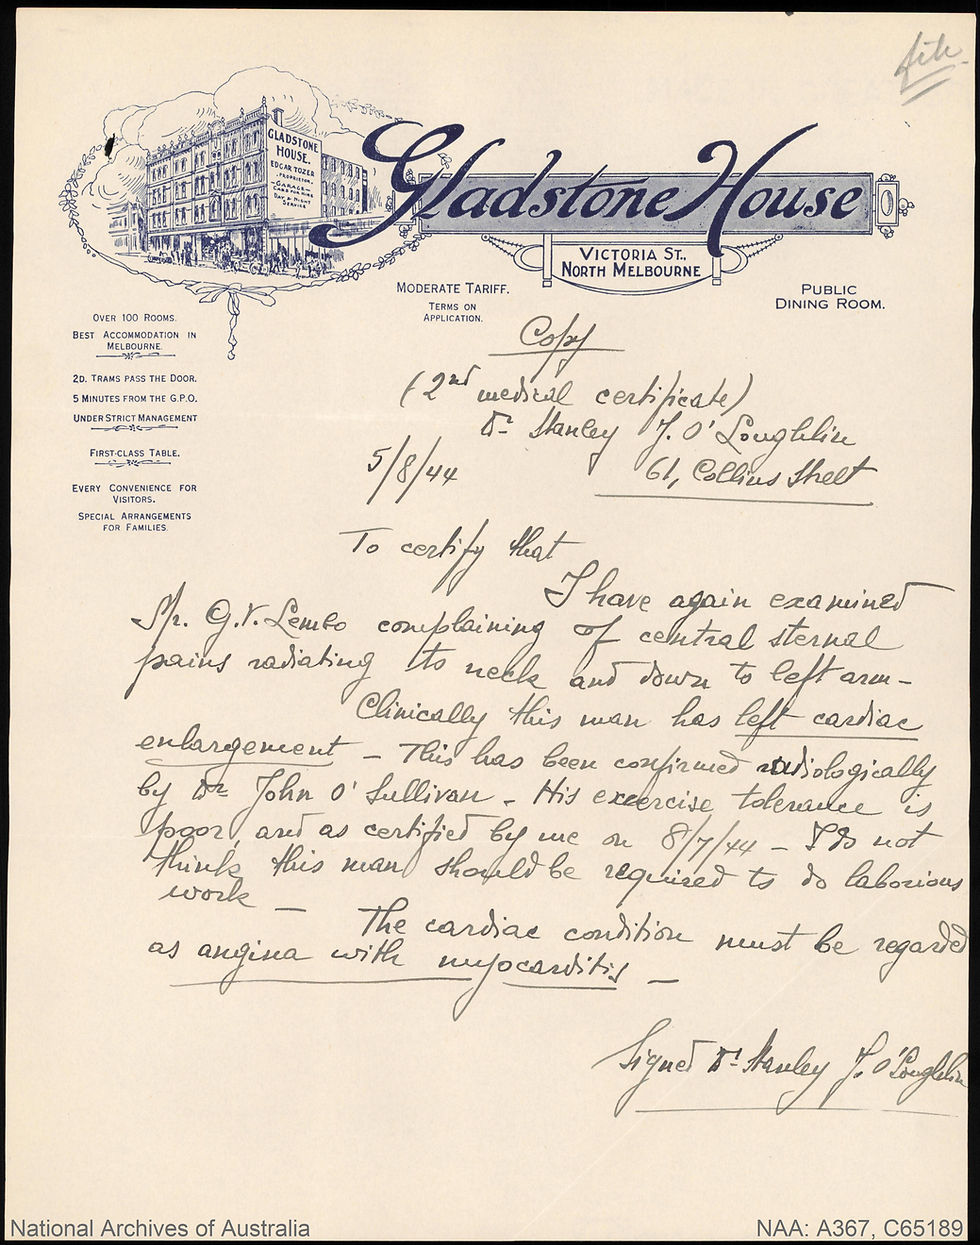 file.
GLADSTONE
HOUSE.
EDGAR TOZER
PROPRIETOR.
GARAGE
DAY & NIGHT
SERVICE
Gladstone House
VICTORIA ST.,
NORTH MELBOURNE
MODERATE TARIFF.
TERMS ON
APPLICATION.
PUBLIC
DINING ROOM.
OVER 100 ROOMS.
BEST ACCOMMODATION IN
MELBOURNE.
2D. TRAMS PASS THE DOOR.
5 MINUTES FROM THE G.P.O.
UNDER STRICT MANAGEMENT
FIRST-CLASS TABLE.
EVERY CONVENIENCE FOR
VISITORS.
SPECIAL ARRANGEMENTS
FOR FAMILIES.
Copy
(2nd medical certificate)
Dr Stanley J. O'Loughlin
5/8/44 61, Collins Street
To certify that
I have again examined
Mr. G.V. Lembo complaining of central sternal
pains radiating to neck and down to left arm-
Clinically this man has left cardiac
enlargement - This has been confirmed radiologically
by Dr John O'Sullivan - His exercise tolerance is
poor, and as certified by me on 8/7/44 - I do not
think this man should be required to do laborious
work -
The cardiac condition must be regarded
as angina with myocarditis -
Signed Dr Stanley J. O'Loughlin
National Archives of Australia
NAA: A367, C65189